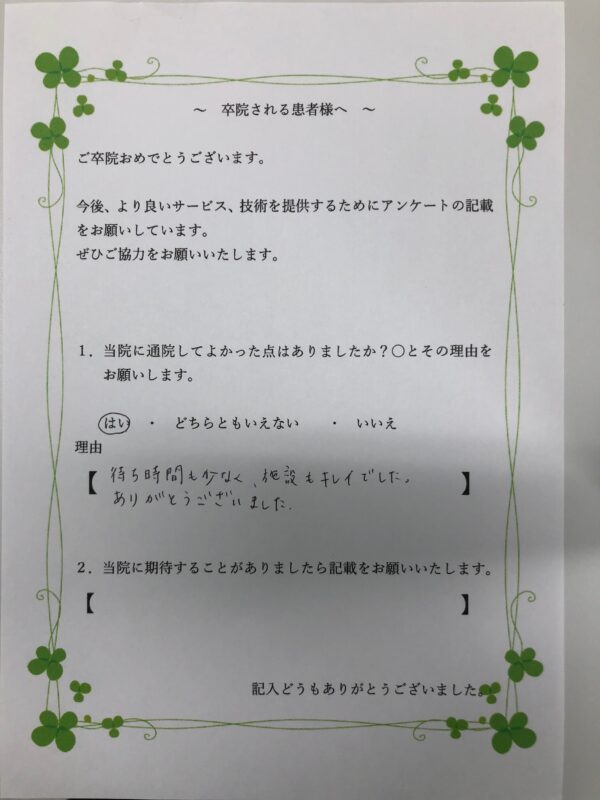 ～ 卒院される患者様へ ～
ご卒院おめでとうございます。
今後、より良いサービス、技術を提供するためにアンケートの記載
をお願いしています。
ぜひご協力をお願いいたします。
１．当院に通院してよかった点はありましたか？〇とその理由を
お願いします。
はい ・ どちらともいえない ・ いいえ
理由
【 待ち時間も少なく、施設もキレイでした。 】
ありがとうございました.
２．当院に期待することがありましたら記載をお願いいたします。
【 】
記入どうもありがとうございました。